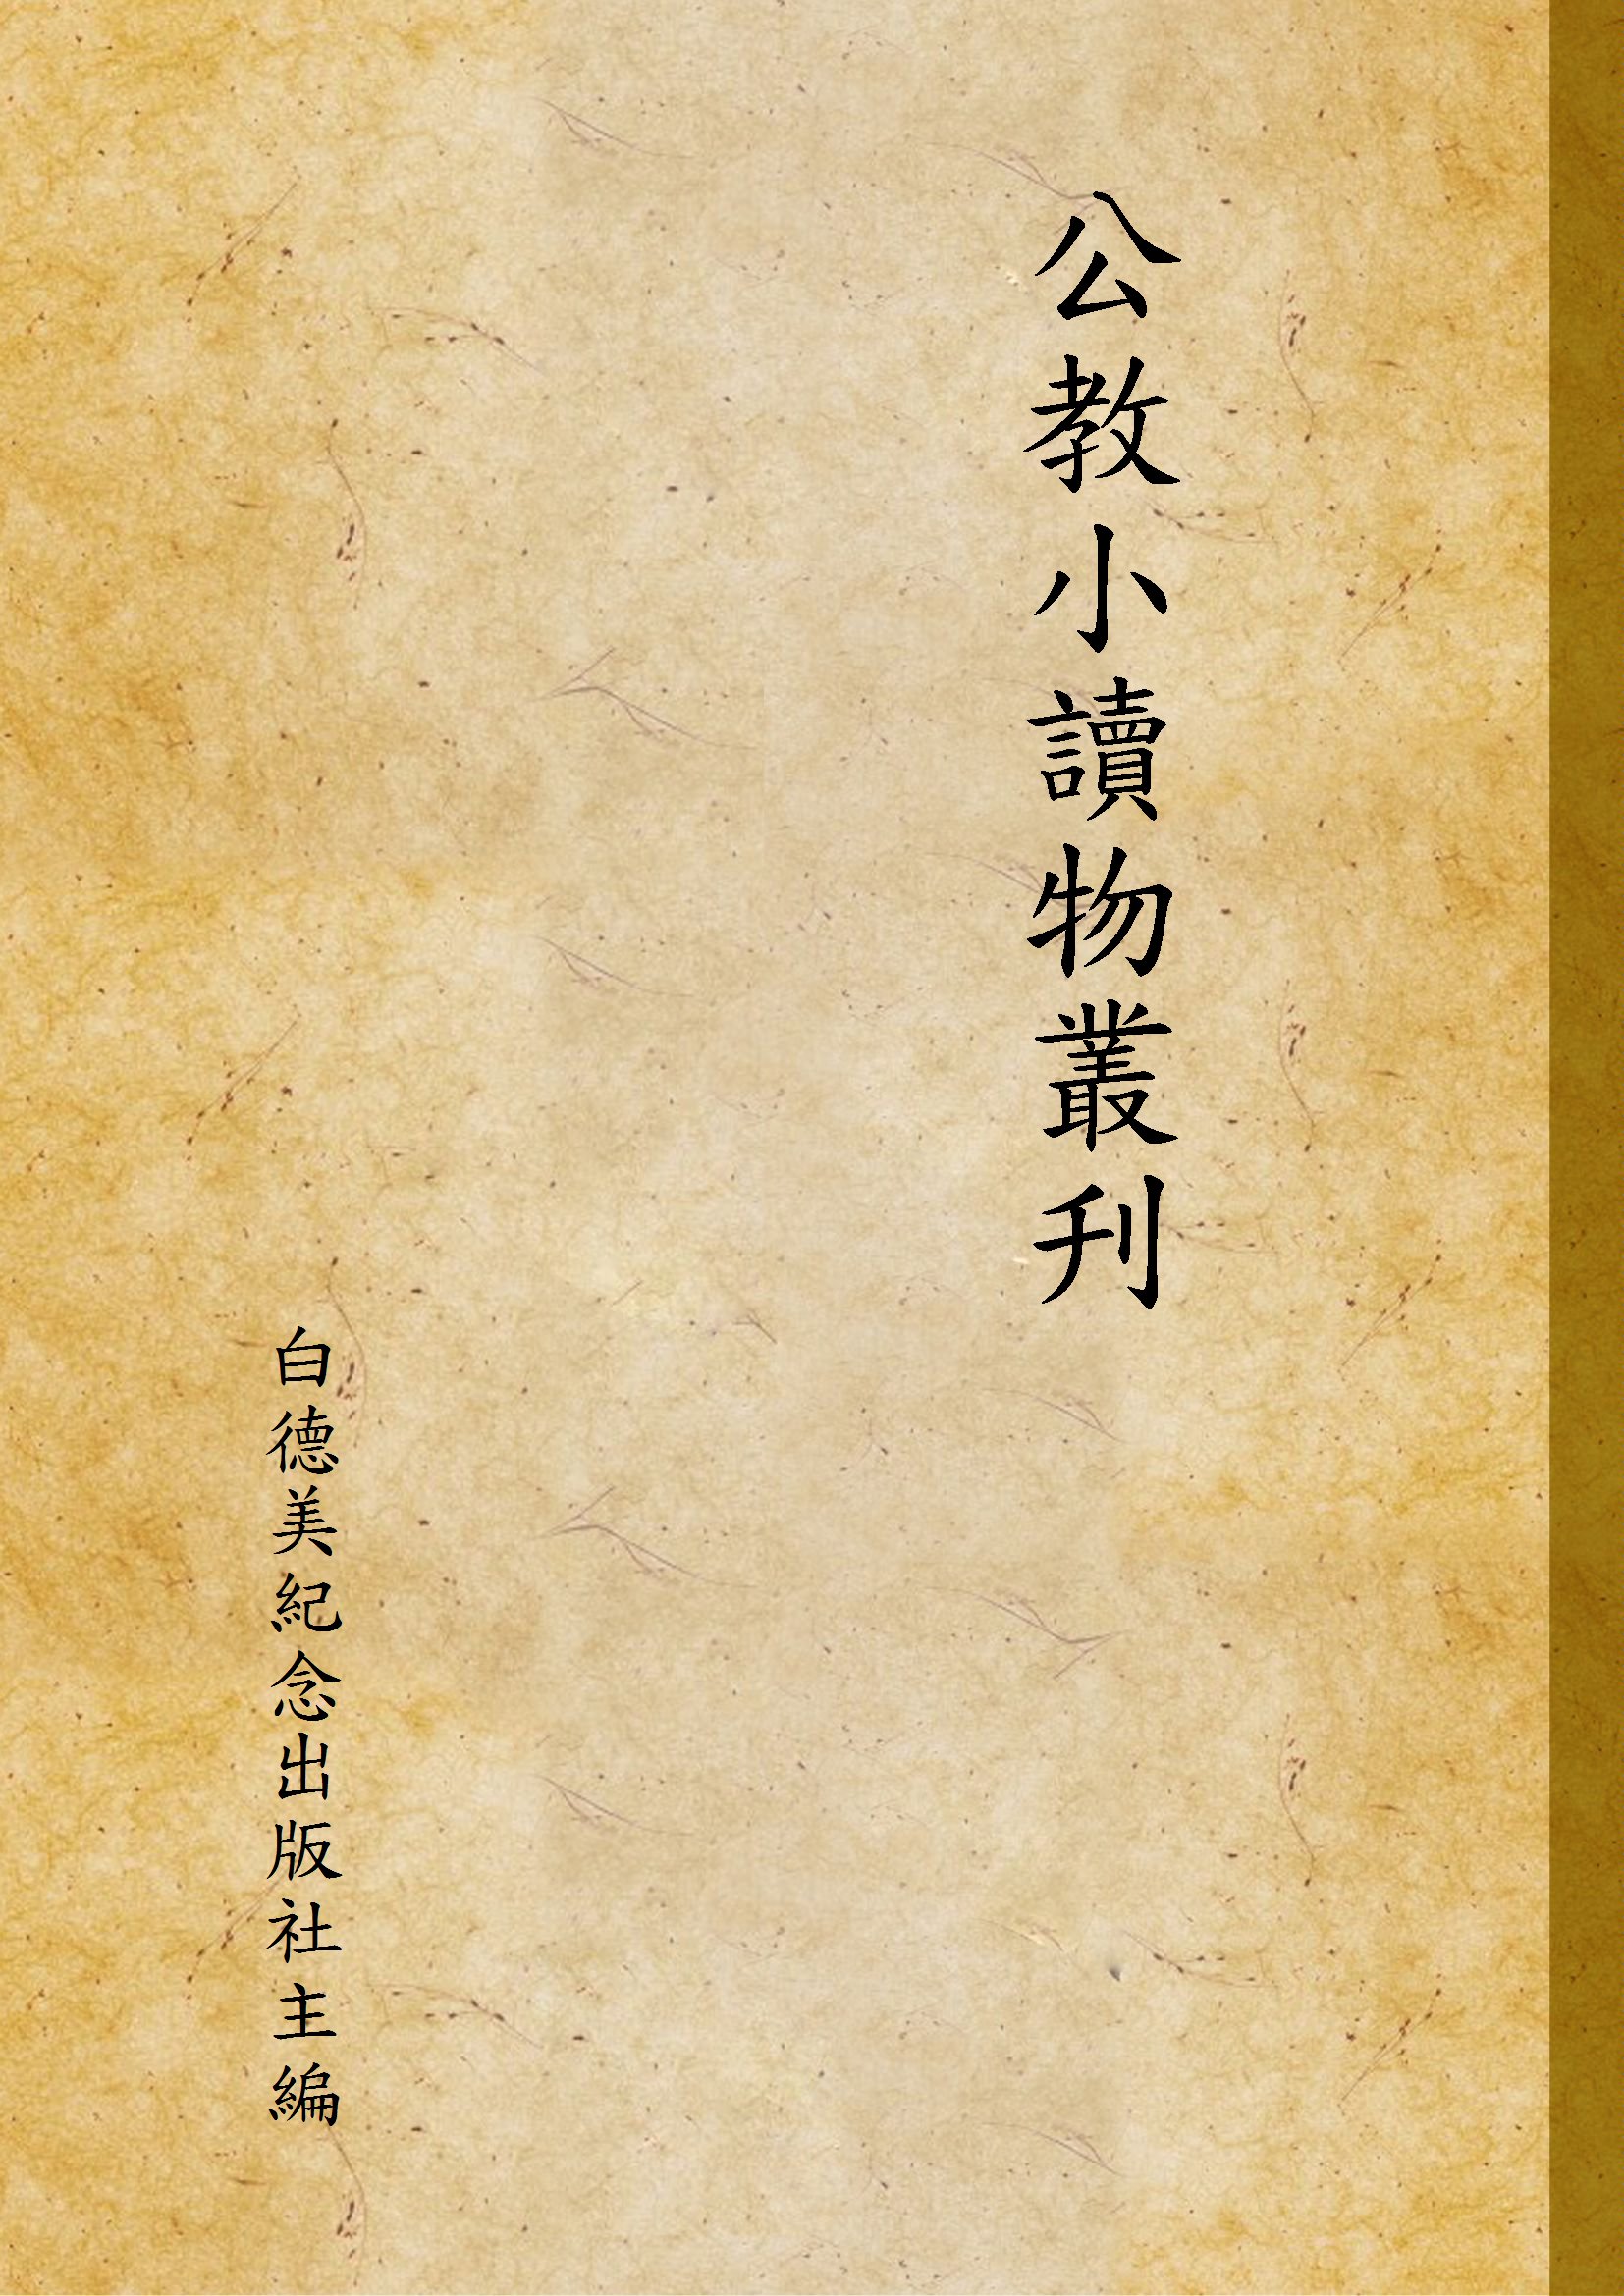 公教小讀物叢刊
白德美紀念出版社主編